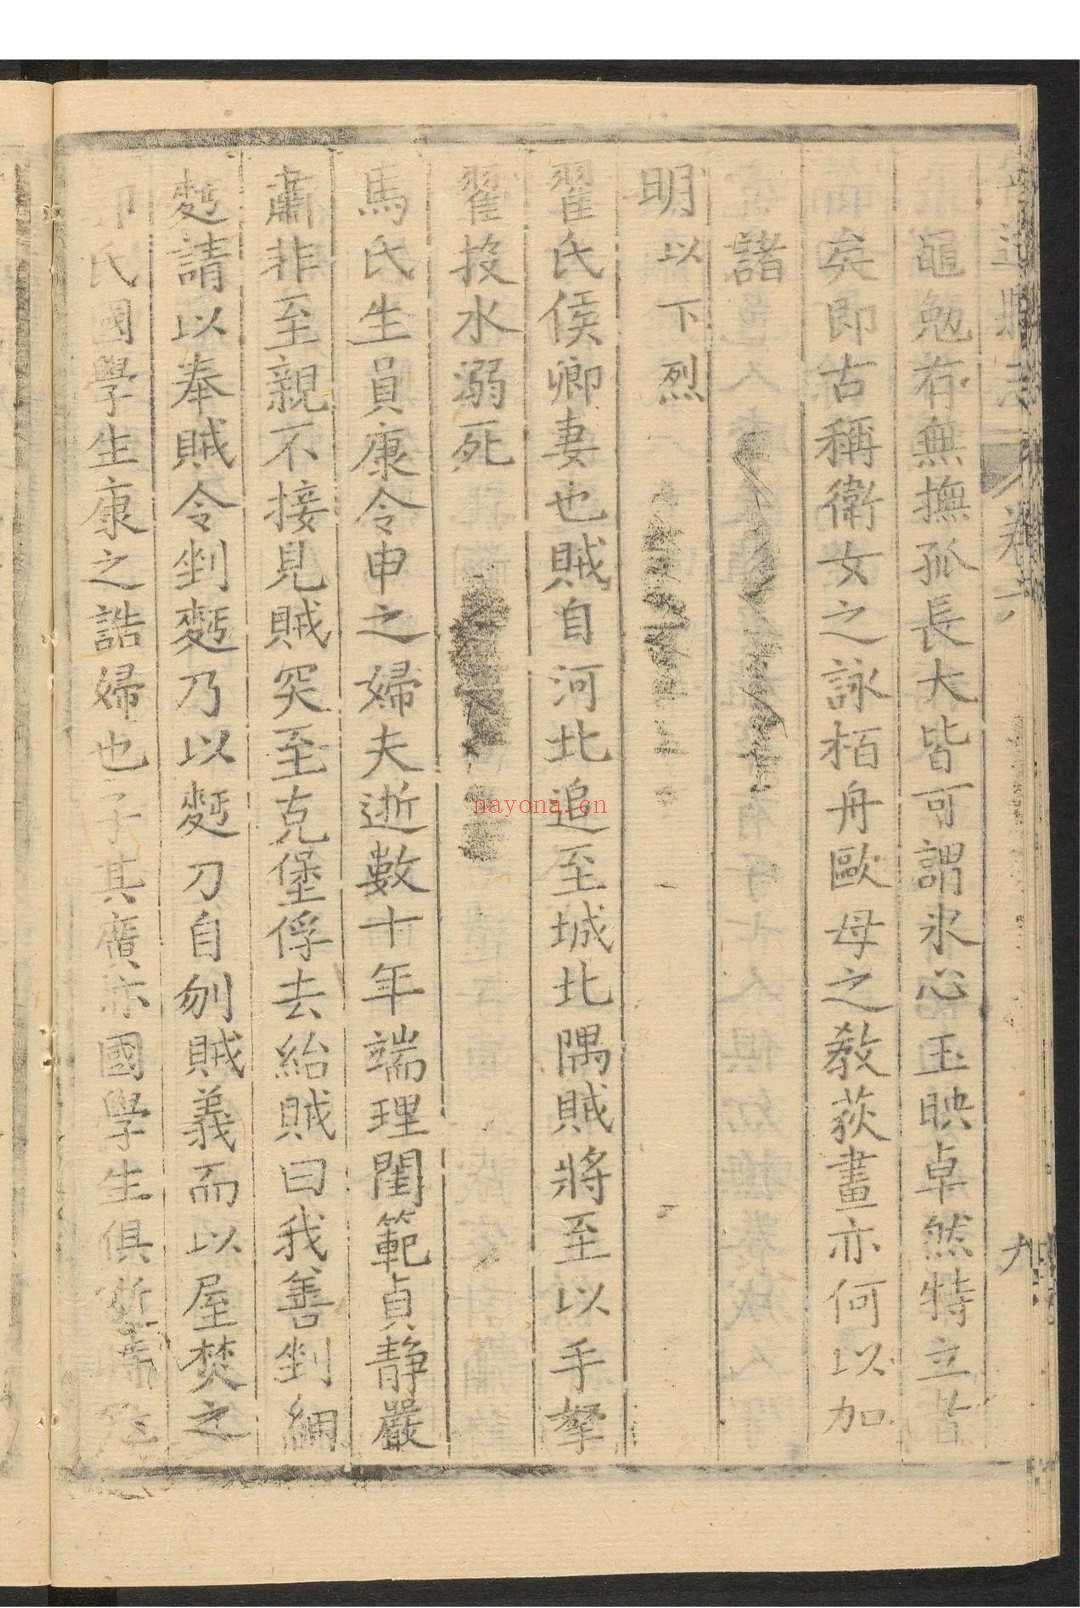 黽勉有無撫孤長大皆可謂氷心玉映卓然特立昔
矣即古稱衛女之詠栢舟歐母之敎荻畫亦何以加
諸
明以下烈
翟氏侯卿妻也賊自河北追至城北隅賊將至以手拏
翟投水溺死
馬氏生員康令申之婦夫逝數十年端理閨範貞静嚴
肅非至親不接見賊突至克堡俘去紿賊曰我善剉綢
麪請以奉賊令剉麪乃以麪刀自刎賊義而以屋焚之
氏國學生康之誥婦也子其廣亦國學生俱
卷六
九
nayona.cn